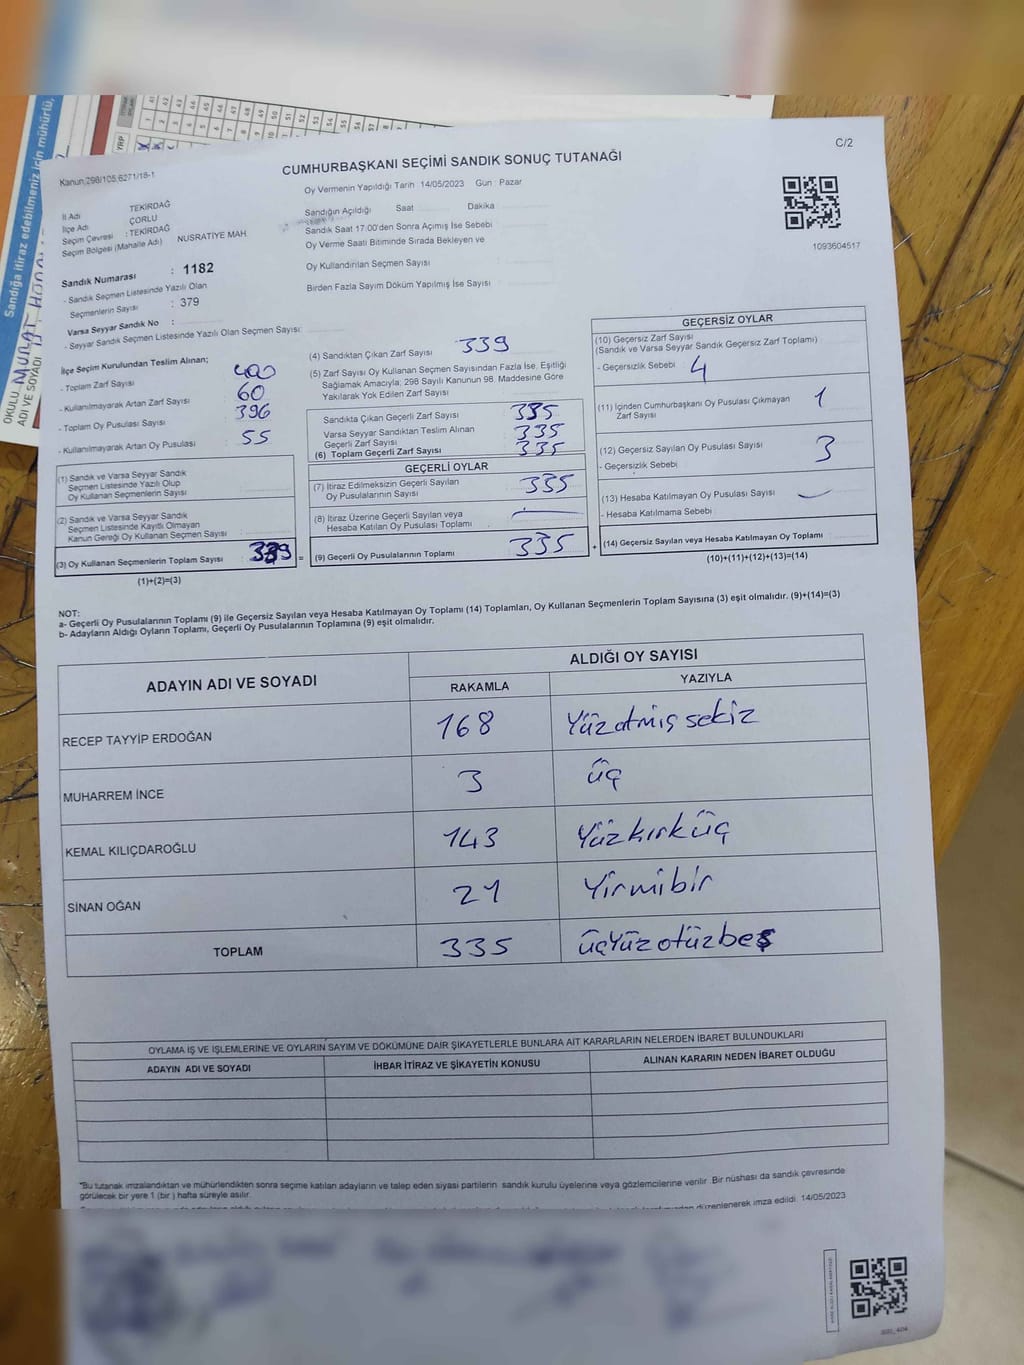 Sandığa itiraz edebilmeniz için mühürlü,
OKULU
MURAT
ADI VE SOYADI
YRP
C/2
Kanun:298/105,6271/18-1
CUMHURBAŞKANI SEÇİMİ SANDIK SONUÇ TUTANAĞI
Oy Vermenin Yapıldığı Tarih 14/05/2023 Gün : Pazar
1093604517
İl Adı TEKİRDAĞ
İlçe Adı ÇORLU
Seçim Çevresi : TEKİRDAĞ
Seçim Bölgesi (Mahalle Adı) NUSRATİYE MAH.
Sandık Numarası : 1182
- Sandık Seçmen Listesinde Yazılı Olan
Seçmenlerin Sayısı : 379
Varsa Seyyar Sandık No :
- Seyyar Sandık Seçmen Listesinde Yazılı Olan Seçmen Sayısı:
Sandığın Açıldığı Saat Dakika
Sandık Saat 17.00'den Sonra Açımış İse Sebebi
Oy Verme Saati Bitiminde Sırada Bekleyen ve
Oy Kullandırılan Seçmen Sayısı :
Birden Fazla Sayım Döküm Yapılmış İse Sayısı :
İlçe Seçim Kurulundan Teslim Alınan;
- Toplam Zarf Sayısı 400
- Kullanılmayarak Artan Zarf Sayısı 60
- Toplam Oy Pusulası Sayısı 396
- Kullanılmayarak Artan Oy Pusulası 55
(1) Sandık ve Varsa Seyyar Sandık
Seçmen Listesinde Yazılı Olup
Oy Kullanan Seçmenlerin Sayısı
(2) Sandık ve Varsa Seyyar Sandık
Seçmen Listesinde Kayıtlı Olmayan
Kanun Gereği Oy Kullanan Seçmen Sayısı
(3) Oy Kullanan Seçmenlerin Toplam Sayısı 339 =
(1)+(2)=(3)
(4) Sandıktan Çıkan Zarf Sayısı 339
(5) Zarf Sayısı Oy Kullanan Seçmen Sayısından Fazla İse, Eşitliği
Sağlamak Amacıyla; 298 Sayılı Kanunun 98. Maddesine Göre
Yakılarak Yok Edilen Zarf Sayısı
Sandıkta Çıkan Geçerli Zarf Sayısı 335
Varsa Seyyar Sandıktan Teslim Alınan
Geçerli Zarf Sayısı 335
(6) Toplam Geçerli Zarf Sayısı 335
GEÇERLİ OYLAR
(7) İtiraz Edilmeksizin Geçerli Sayılan
Oy Pusulalarının Sayısı 335
(8) İtiraz Üzerine Geçerli Sayılan veya
Hesaba Katılan Oy Pusulası Toplamı —
(9) Geçerli Oy Pusulalarının Toplamı 335 +
GEÇERSİZ OYLAR
(10) Geçersiz Zarf Sayısı
(Sandık ve Varsa Seyyar Sandık Geçersiz Zarf Toplamı)
- Geçersizlik Sebebi 4
(11) İçinden Cumhurbaşkanı Oy Pusulası Çıkmayan
Zarf Sayısı 1
(12) Geçersiz Sayılan Oy Pusulası Sayısı
- Geçersizlik Sebebi 3
(13) Hesaba Katılmayan Oy Pusulası Sayısı —
- Hesaba Katılmama Sebebi
(14) Geçersiz Sayılan veya Hesaba Katılmayan Oy Toplamı
(10)+(11)+(12)+(13)=(14)
NOT:
a- Geçerli Oy Pusulalarının Toplamı (9) ile Geçersiz Sayılan veya Hesaba Katılmayan Oy Toplamı (14) Toplamları, Oy Kullanan Seçmenlerin Toplam Sayısına (3) eşit olmalıdır. (9)+(14)=(3)
b- Adayların Aldığı Oyların Toplamı, Geçerli Oy Pusulalarının Toplamına (9) eşit olmalıdır.
ADAYIN ADI VE SOYADI
ALDIĞI OY SAYISI
RAKAMLA YAZIYLA
RECEP TAYYİP ERDOĞAN 168 Yüzatmış sekiz
MUHARREM İNCE 3 üç
KEMAL KILIÇDAROĞLU 143 Yüzkırküç
SİNAN OĞAN 21 Yirmibir
TOPLAM 335 üçYüzotüzbeş
OYLAMA İŞ VE İŞLEMLERİNE VE OYLARIN SAYIM VE DÖKÜMÜNE DAİR ŞİKAYETLERLE BUNLARA AİT KARARLARIN NELERDEN İBARET BULUNDUKLARI
ADAYIN ADI VE SOYADI İHBAR İTİRAZ VE ŞİKAYETİN KONUSU ALINAN KARARIN NEDEN İBARET OLDUĞU
"Bu tutanak imzalandıktan ve mühürlendikten sonra seçime katılan adayların ve talep eden siyasi partilerin sandık kurulu üyelerine veya gözlemcilerine verilir. Bir nüshası da sandık çevresinde
görülecek bir yere 1 (bir ) hafta süreyle asılır.
düzenlenerek imza edildi. 14/05/2023